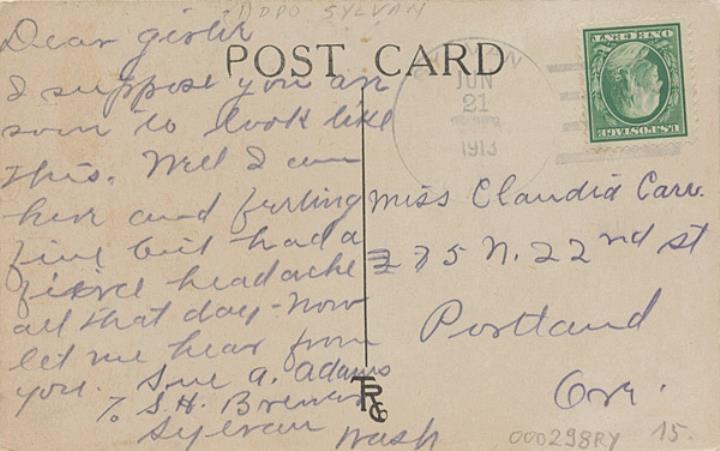 (1) DPO SYLVAN
Dear girlie
I suppose you are
soon to look like
this. Well I am
here and feeling
fine but had a
fierce headache
all that day - now
let me hear from
you. Sue A. Adams
% S.H. Brewer
Sylvan Wash
POST CARD
JUN
21
1913
ONE CENT
U.S. POSTAGE
Miss Claudia Carr.
275 N. 22nd st
Portland
Ore.
000298RY 15.